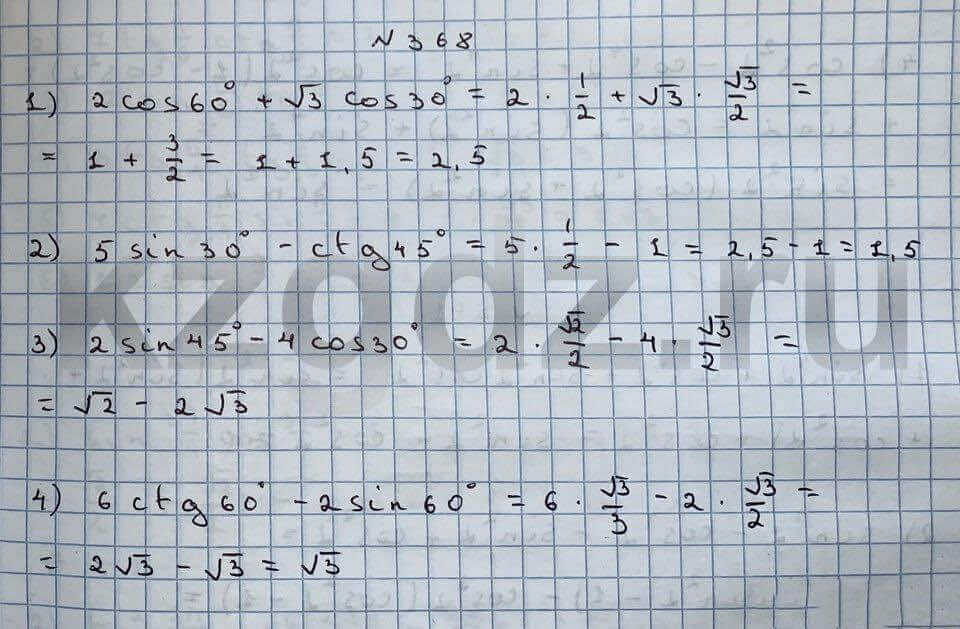 N 368
1) 2 cos 60° + √3 cos 30° = 2 · 1/2 + √3 · √3/2 =
= 1 + 3/2 = 1 + 1,5 = 2,5
2) 5 sin 30° - ctg 45° = 5 · 1/2 - 1 = 2,5 - 1 = 1,5
kzgdz.ru
3) 2 sin 45° - 4 cos 30° = 2 · √2/2 - 4 · √3/2 =
= √2 - 2√3
4) 6 ctg 60° - 2 sin 60° = 6 · √3/3 - 2 · √3/2 =
= 2√3 - √3 = √3